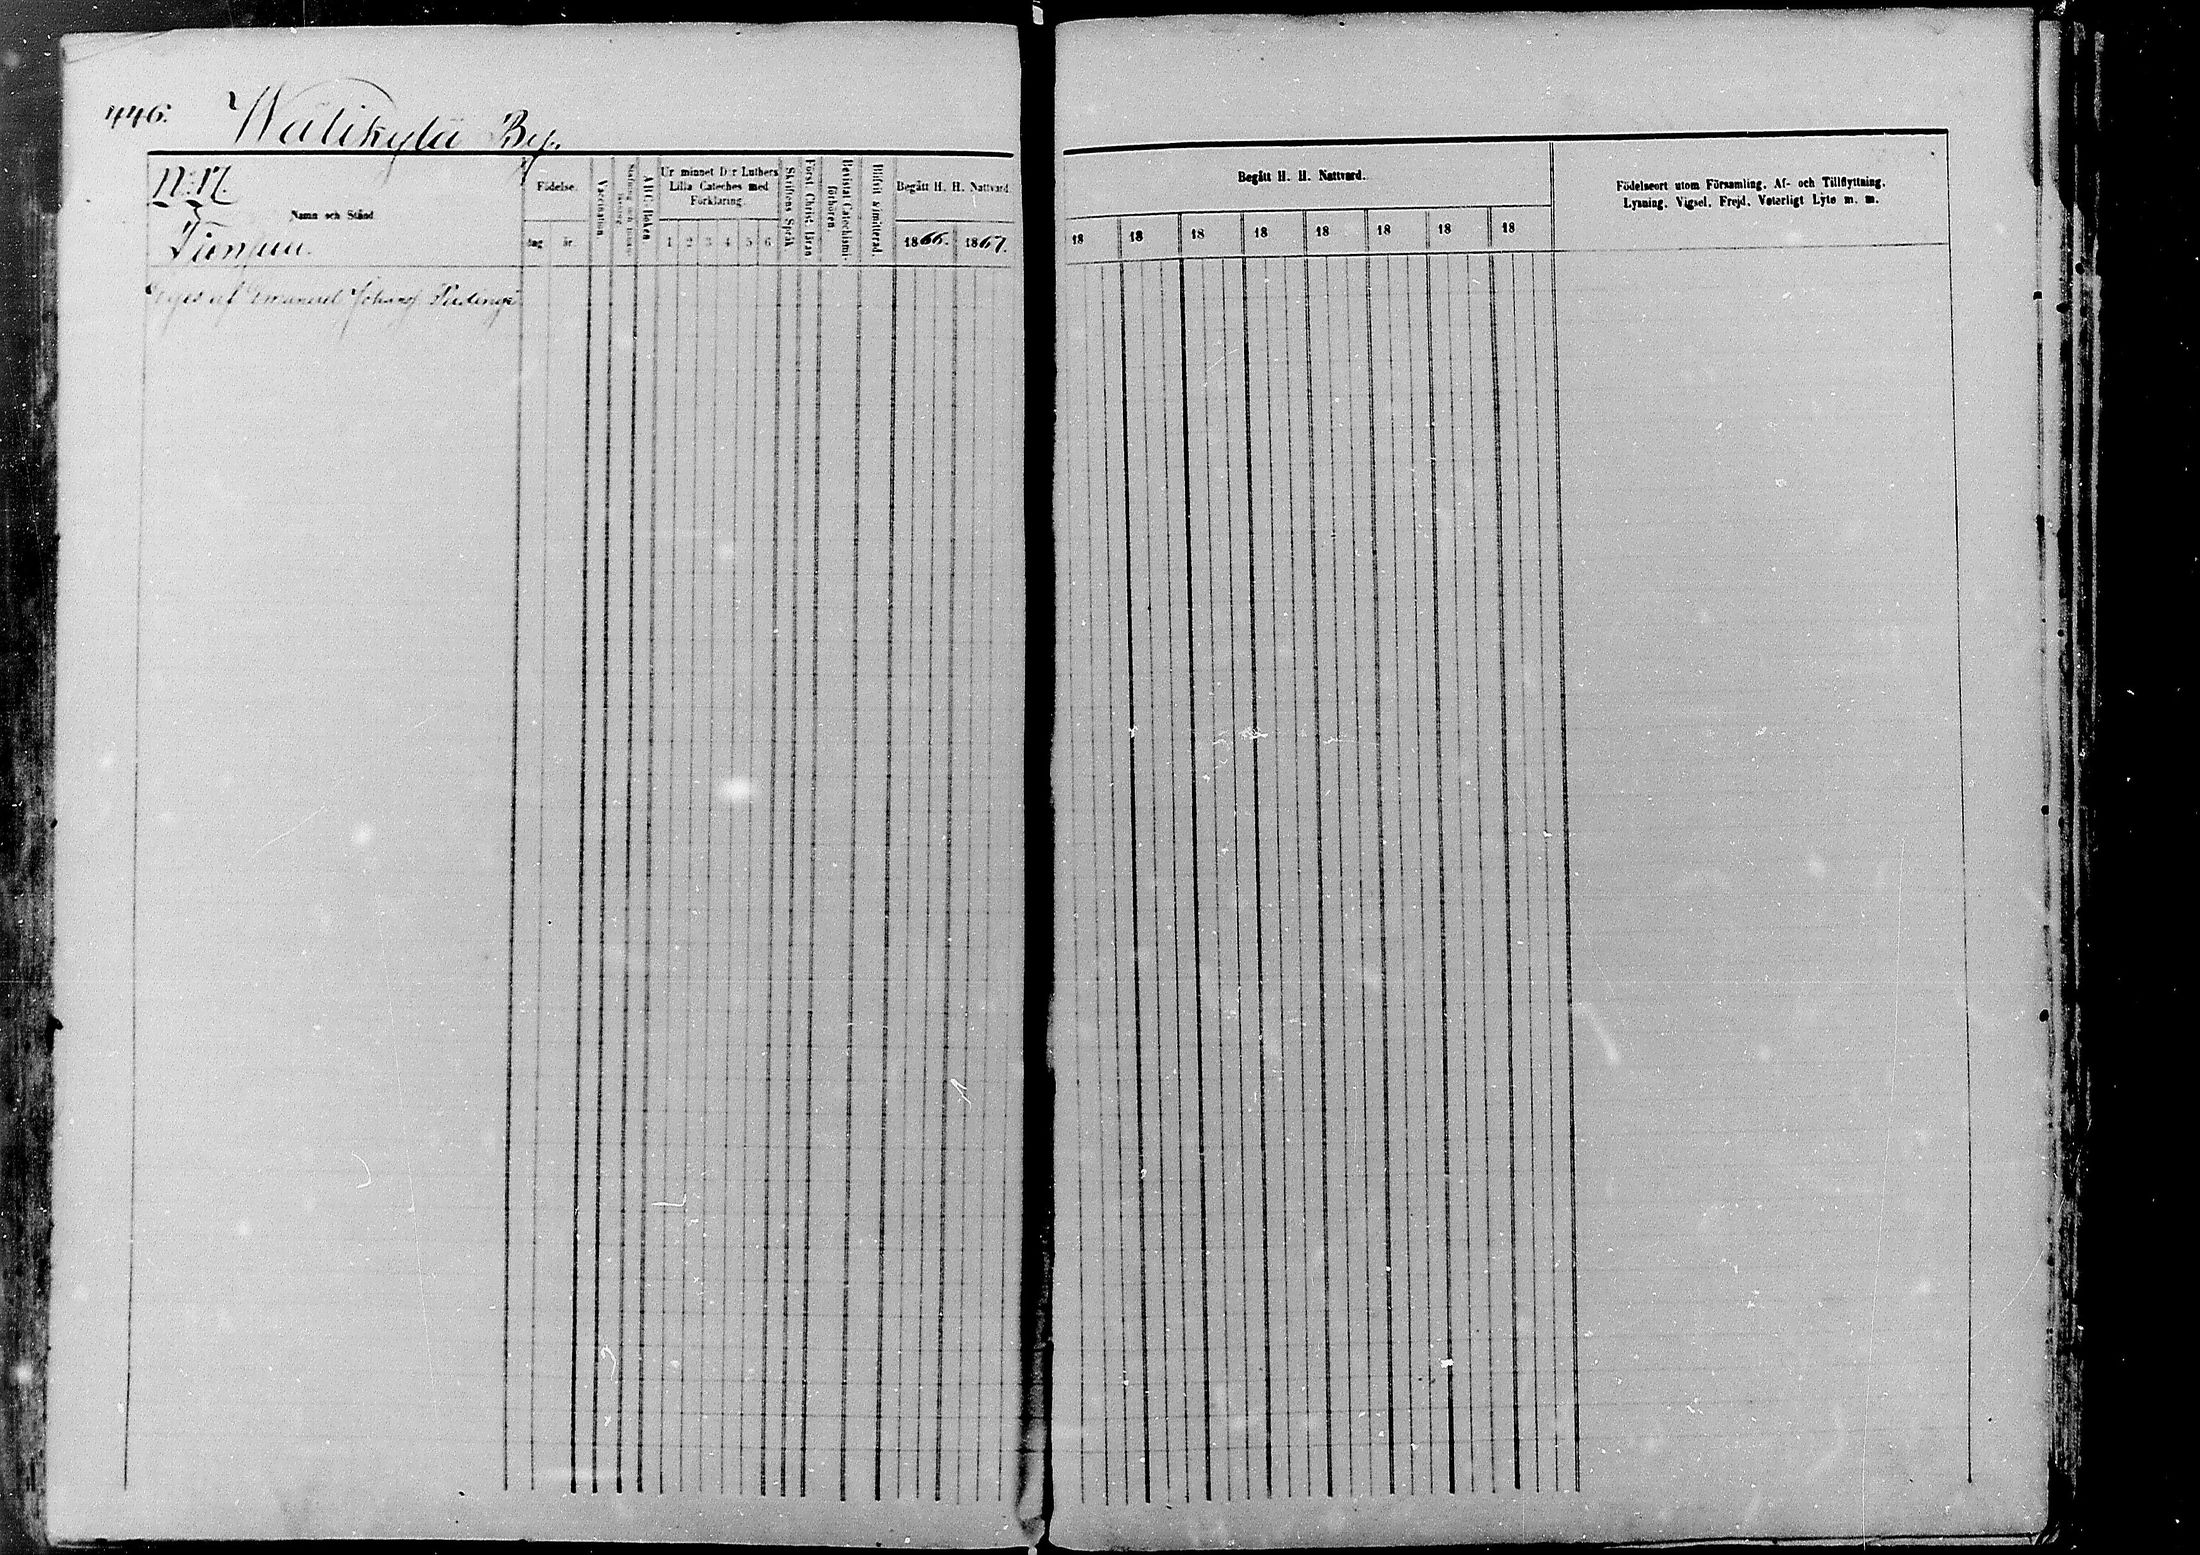 446. Wälikylä By.
N:o 17.
Namn och Stånd
Födelse.
dag år.
Vaccination
ABC-Boken
Ur minnet D:r Luthers
Lilla Cateches med
Förklaring.
1 2 3 4 5 6
Skriftens Språk
Först. Christ. läran
Bevistat Catechismi-
förhören.
Blifvit admitterad.
Begått H. H. Nattvard
1866. 1867.
Eges af Emanuel Johans
Begått H. H. Nattvard.
18 18 18 18 18 18 18 18
Födelseort utom Församling, Af- och Tillflyttning,
Lysning, Vigsel, Frejd, Veterligt Lyte m. m.